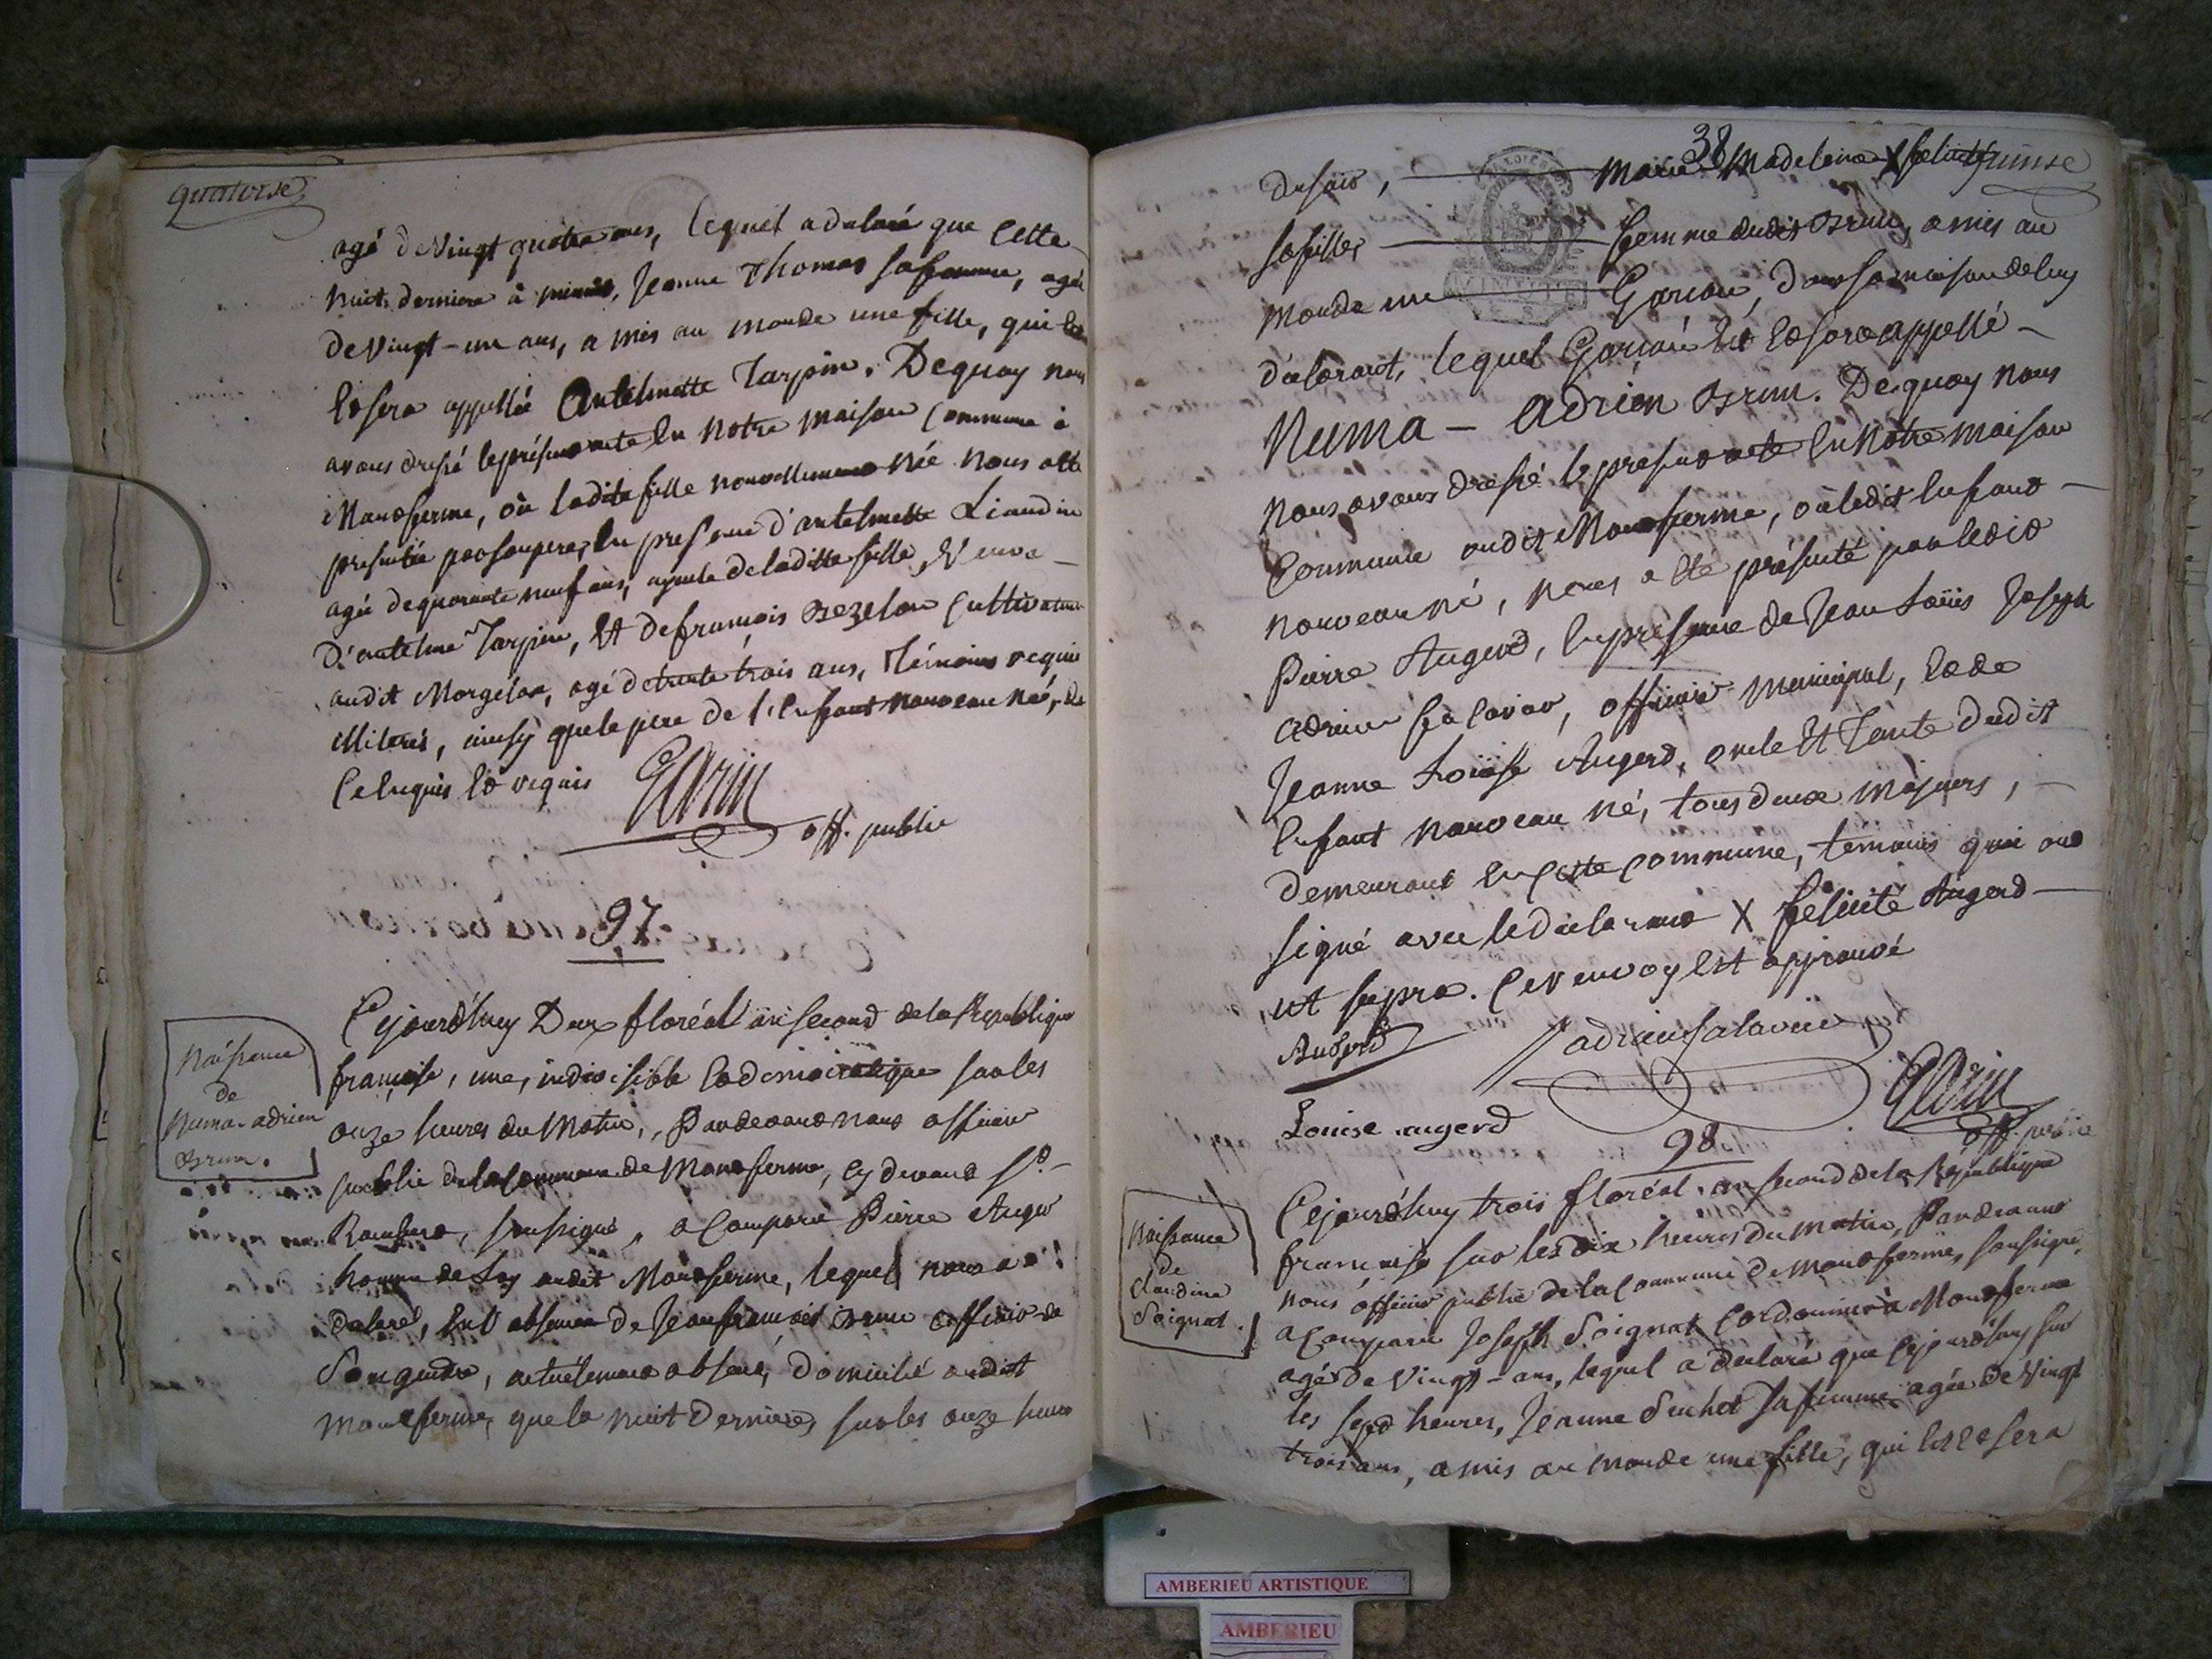 quatorse
agé de Vingt quatre ans, lequel a declaré que Cette
nuit derniere à minuit, Jeanne Thomas sa femme, agée
de Vingt-un ans, a mis au monde une fille, qui Est
Et sera appellée Antelmette Tarpin. De quoy nous
avons dressé le présent acte En Notre Maison Commune à
Montferme, où ladite fille nouvellement Née Nous a été
presentée par son pere, En presence d'antelmette Liaudin
agée de quarante neuf ans, ayeule de laditte fille, Veuve
d'antelme Tarpin, Et de françois Bezelon Cultivateur
audit Morgelon, agé de trente trois ans, Témoins requis
illiterés, ainsy que le pere de l'Enfant nouveau Né, de
Ce Enquis Et requis
off. public
97.
Naissance
de
Numa-adrien
Brun.
Cejourd'huy Deux floréal an second de la Republique
françoise, une, indivisible Et démocratique sur les
onze heures du Matin, Pardevant nous officier
public de la Commune de Montferme, cy devant St-
Rambert, soussigné, a Comparu Pierre Auger
homme de Loy audit Montferme, lequel nous a
declaré, En l'absence de Jean françois Brun officier de
Son gendre, actuelement absent, Domicilié audit
Montferme, que la nuit Derniere, sur les onze heures
38
quinse
du soir, Marie Madeleine X felicité
sa fille, femme dudit Brun, a mis au
Monde un Garçon, dans la maison de luy
déclarant, lequel Garçon Est Et sera appellé
Numa - Adrien Brun. De quoy nous
Nous avons dressé le présent acte En Notre maison
Commune audit Montferme, où ledit Enfant
nouveau né, nous a Eté présenté par ledit
Pierre Augerd, En presence de Jean Loüis Joseph
adrien Salavuir, officier Municipal, Et de
Jeanne Loüise Augerd, oncle Et Tante dudit
Enfant nouveau Né, tous deux Majeurs,
demeurant En Cette Commune, témoins qui ont
signé avec le déclarant X félicité Augerd
ut supra. Ce renvoy Est approuvé
Augerd
Louise augerd
off. public
98
Naissance
de
Claudine
Soignat.
Cejourd'huy trois floréal, an second de la République
francoise sur les dix heures du matin, Pardevant
nous officier public de la Commune de Montferme, soussigné,
a Comparu Joseph Soignat Cordonnier à Montferme
agé de Vingt - ans, lequel a declaré que Cejourd'huy sur
les sept heures, Jeanne Suchet sa femme agée de Vingt
trois ans, a mis au Monde une fille, qui Est Et sera
AMBERIEU ARTISTIQUE
AMBERIEU